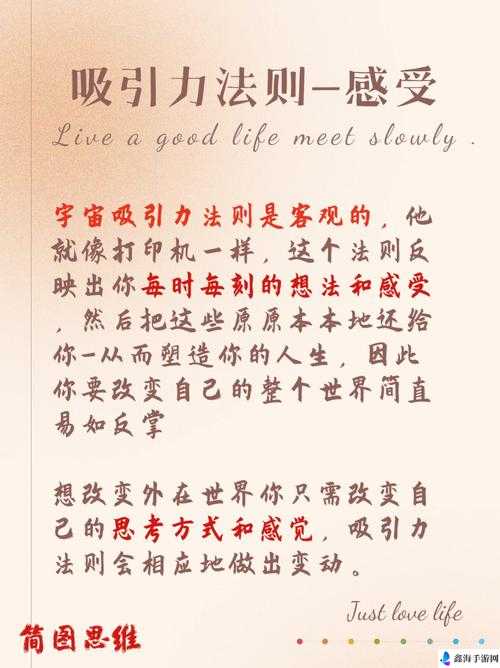 吸引力法则-感受
Live a good life meet slowly .
宇宙吸引力法则是客观的，他
就像打印机一样，这个法则反
映出你每时每刻的想法和感受
，然后把这些原原本本地还给
你-从而塑造你的人生，因此
你要改变自己的整个世界简直
易如反掌
想改变外在世界你只需改变自
己的思考方式和感觉，吸引力
法则会相应地做出变动。
Just love life
简图思维
鑫海手游网